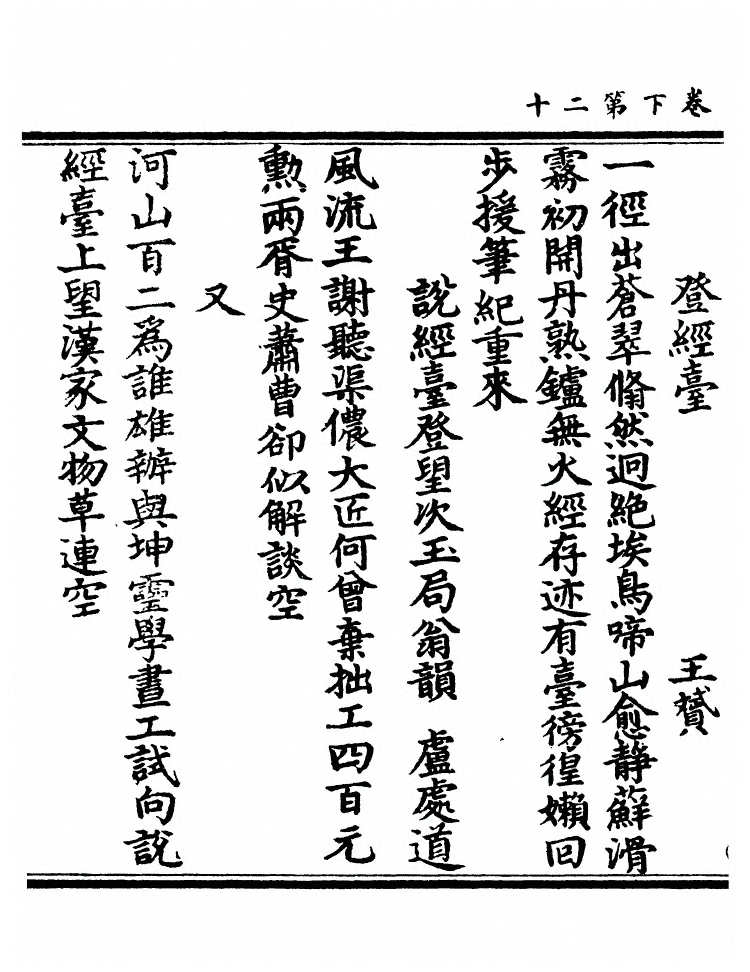 卷下第二十
登經臺　王贊
一徑出蒼翠翛然迥絶埃鳥啼山愈静蘚滑
霧初開丹熟鑪無火經存迹有臺徬徨嬾回
步援筆紀重來
説經臺登望次玉局翁韻　盧處道
風流王謝聽渠儂大匠何曾棄拙工四百元
勲兩胥史蕭曹卻似解談空
又
河山百二為誰雄辦與坤靈學畫工試向説
經臺上望漢家文物草連空